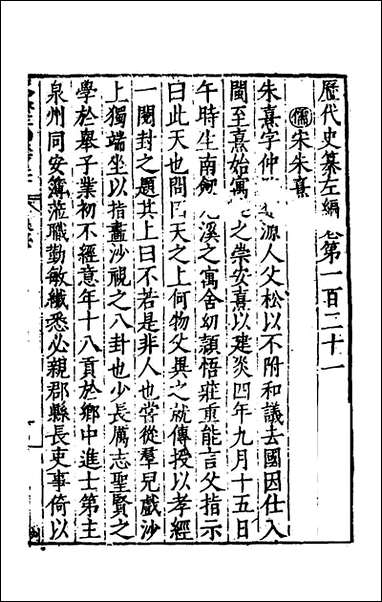 歷代史纂左編卷第一百二十一
儒宋朱熹
朱熹字仲 源人父松以不附和議去國因仕入
閩至熹始寓 之崇安熹以建炎四年九月十五日
午時生南劍 溪之寓舍幼頴悟莊重能言父指示
曰此天也問曰天之上何物父異之就傳授以孝經
一閱封之題其上曰不若是非人也嘗從羣兒戲沙
上獨端坐以指畫沙視之八卦也少長厲志聖賢之
學於舉子業初不經意年十八貢於鄉中進士第主
泉州同安簿蒞職勤敏纖悉必親郡縣長吏事倚以